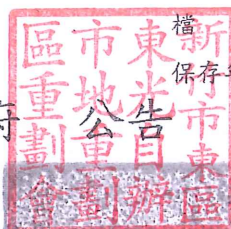 檔
保存
公告
新竹市東區
東光自辦
市地重劃
區重劃會